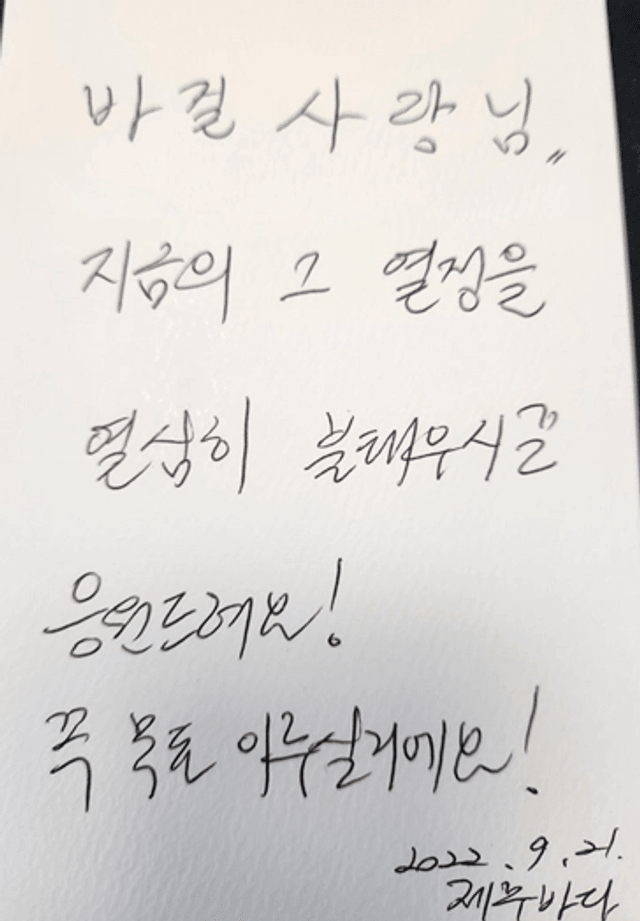 바걸 사랑님〃
지금의 그 열정을
열심히 불태우시길
응원드려요!
꼭 목표 이루실거예요!
2022.9.21.
제주바다